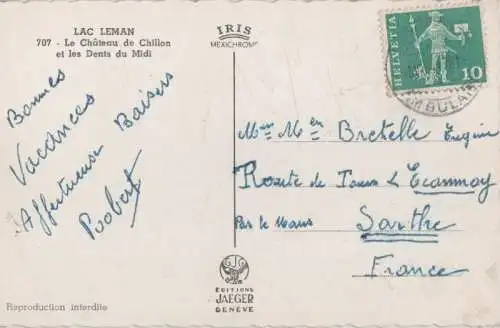 LAC LEMAN
707 - Le Château de Chillon
et les Dents du Midi
IRIS
MEXICHROME
HELVETIA
10
AMBULANT
Bonnes
Vacances
Affectueuse Baisers
Roobert
Mme Mer Bretelle Eugène
Route de Tours à Ecommoy
Par le Mans Sarthe
France
ÉDITIONS
JAEGER
GENÈVE
Reproduction interdite